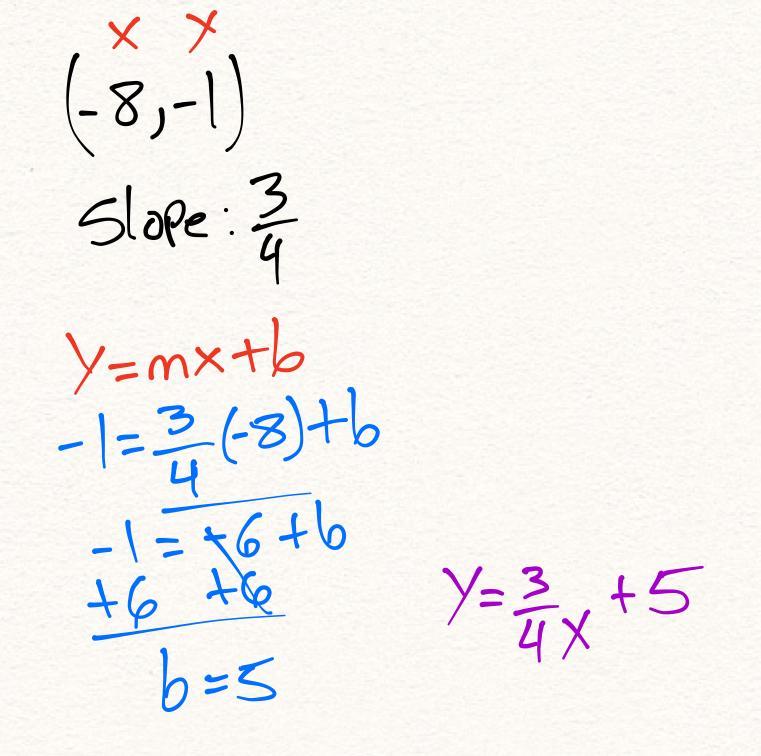 x y
(-8,-1)
Slope: 3/4
y=mx+b
-1=3/4(-8)+b
-1=-6+b
+6 +6
b=5
y=3/4x+5